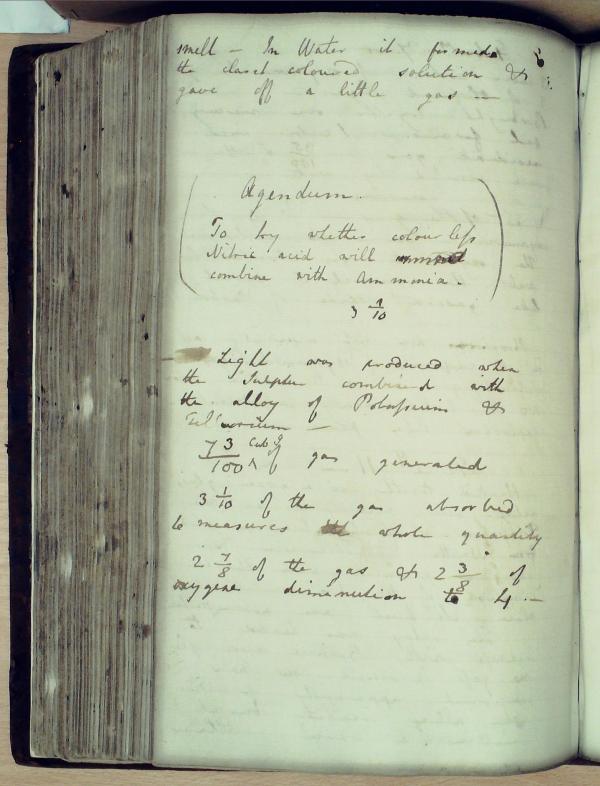 smell — In Water it formed
the claret coloured solution &
gave off a little gas —
Agendum.
To try whether colourless
Nitric acid will
combine with ammonia.
3 1/10
Light was produced when
the Sulphur combined with
the alloy of Potassium &
Tellurium —
73/100 Cub I of gas generated
3 1/10 of the gas absorbed
6 measures the whole quantity
2 7/8 of the gas & 2 3/8 of
oxygene diminution to 4 —